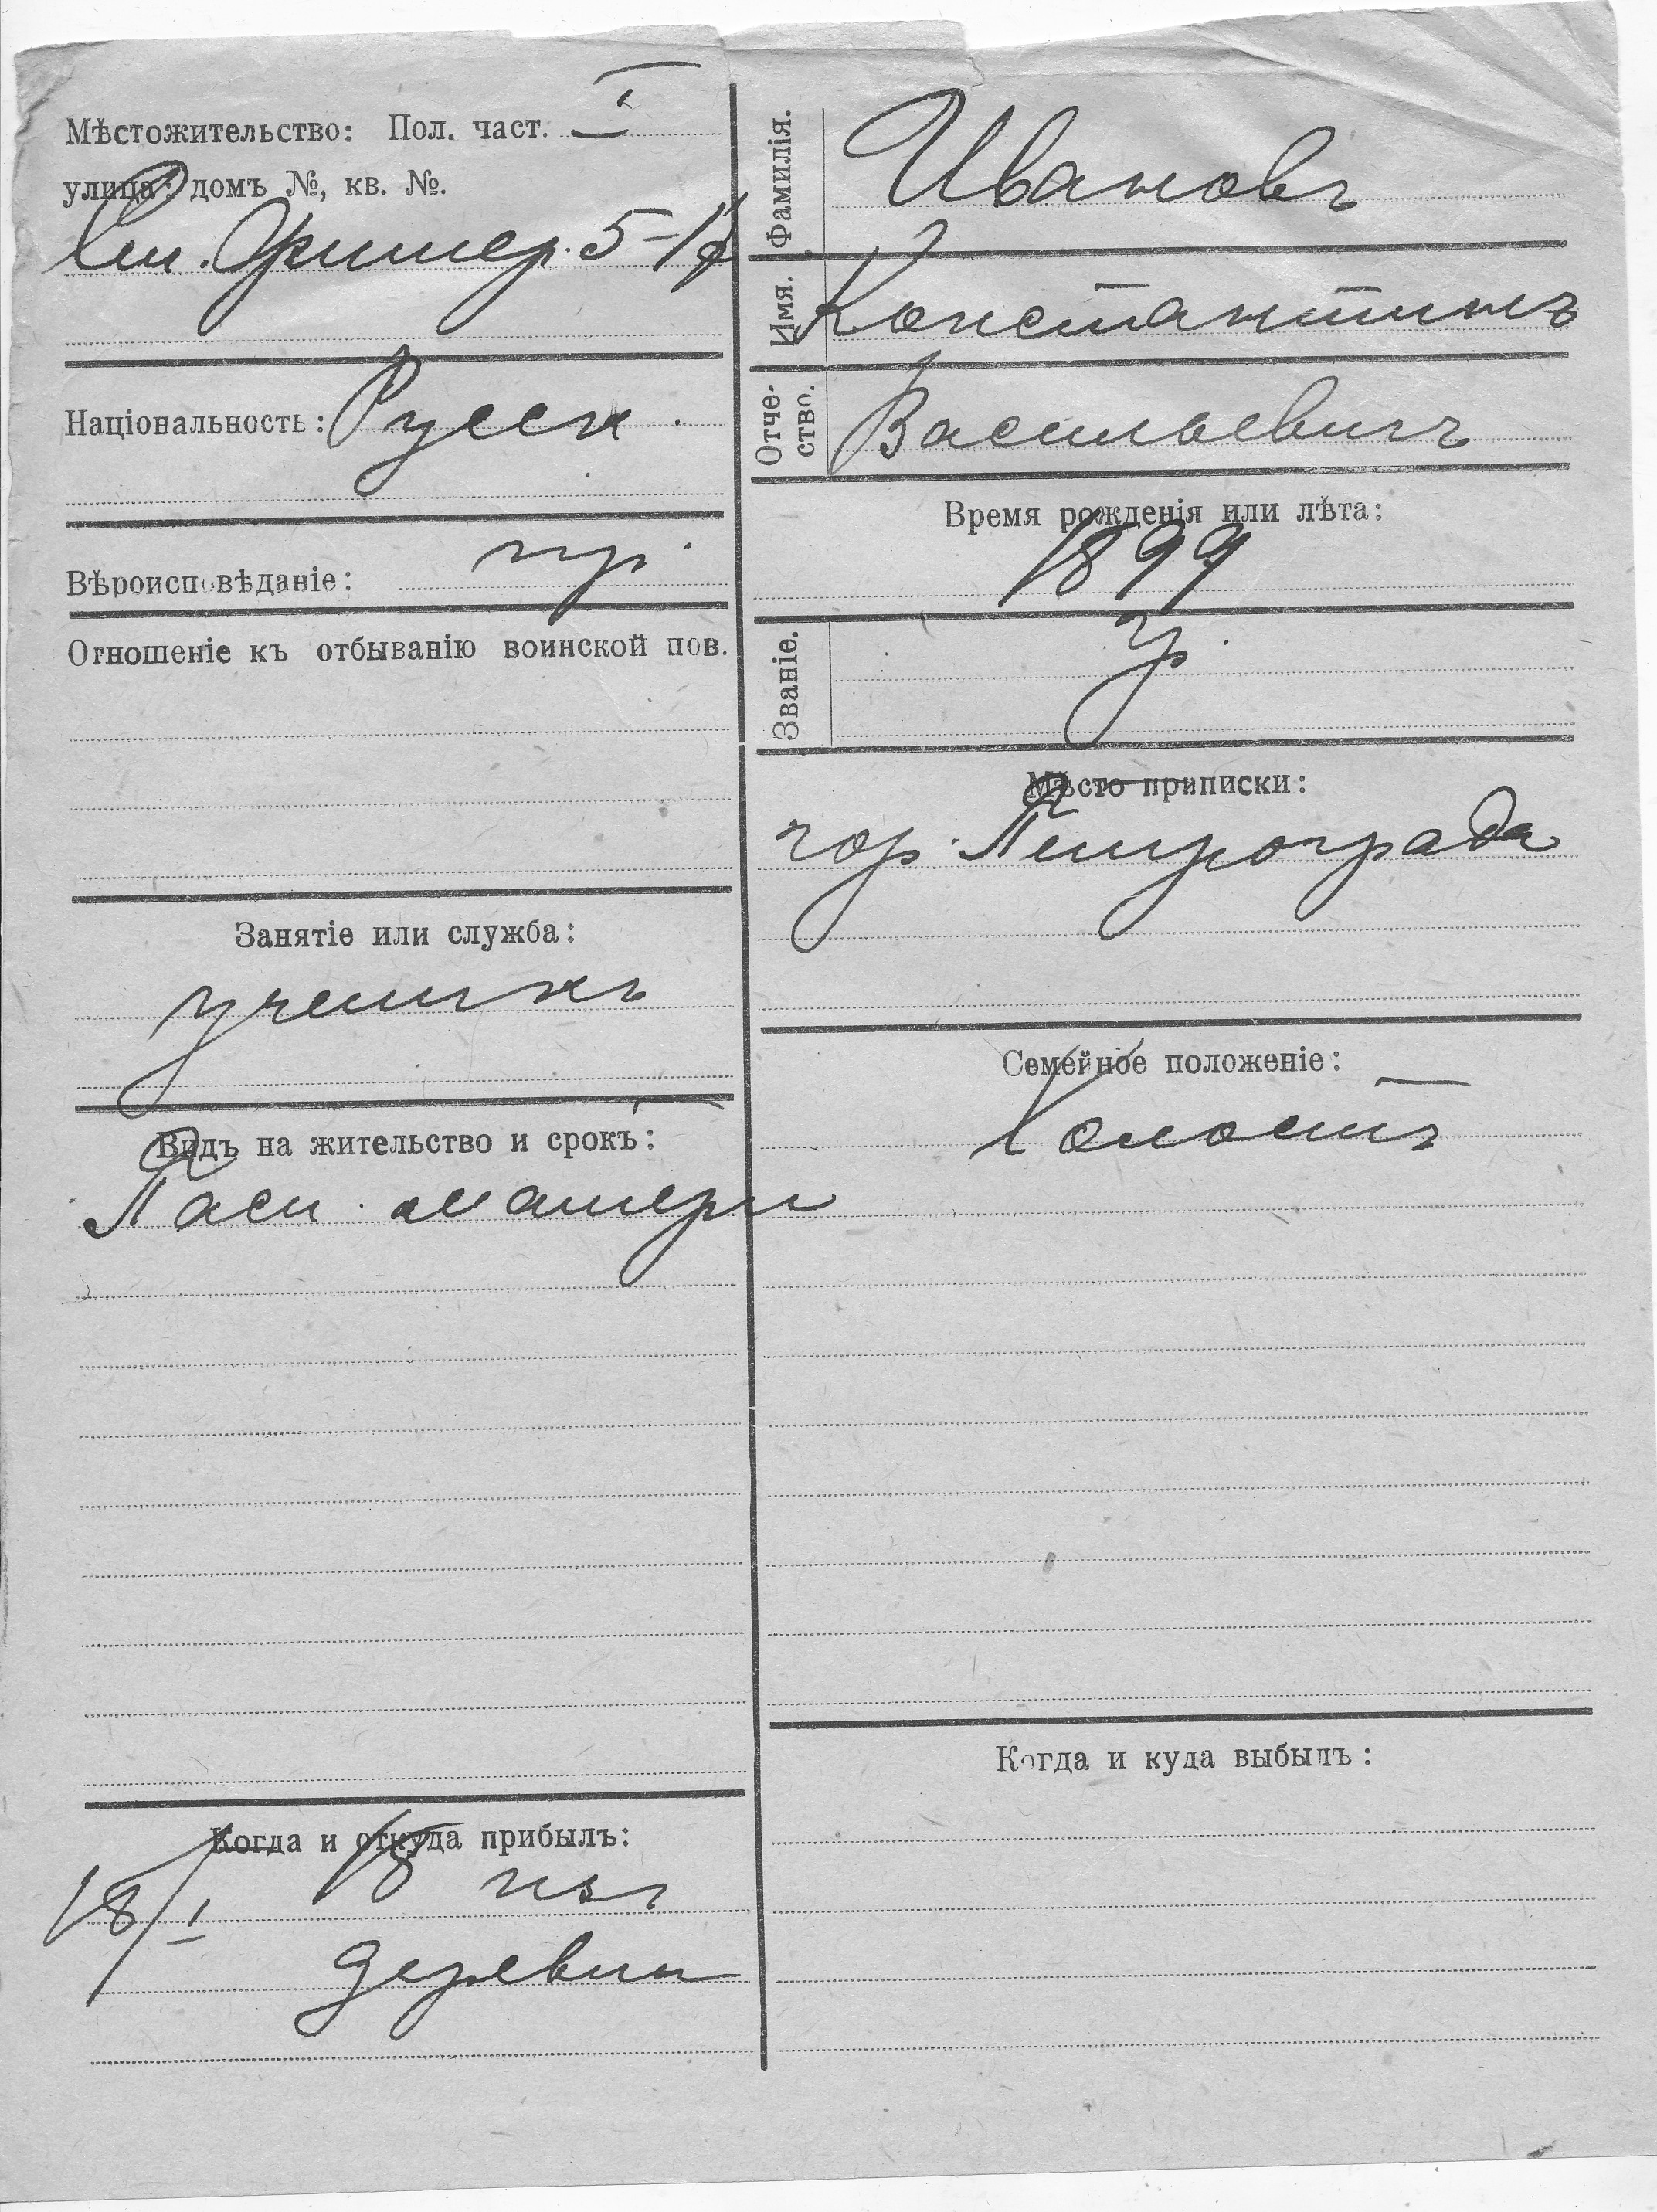 Мѣстожительство: Пол. част. I
улица: домъ №, кв. №.
5-
Національность: Русск.
Вѣроисповѣданіе: пр.
Отношеніе къ отбыванію воинской пов.
Занятіе или служба:
ученикъ
Видъ на жительство и срокъ:
Пасп. матери
Когда и откуда прибылъ:
18/I 18 изъ
деревни
Фамилія. Ивановъ
Имя. Константинъ
Отче-
ство. Васильевичъ
Время рожденія или лѣта:
1899
Званіе. гр.
Мѣсто приписки:
гор. Петрограда
Семейное положеніе:
Холостъ
Когда и куда выбылъ: